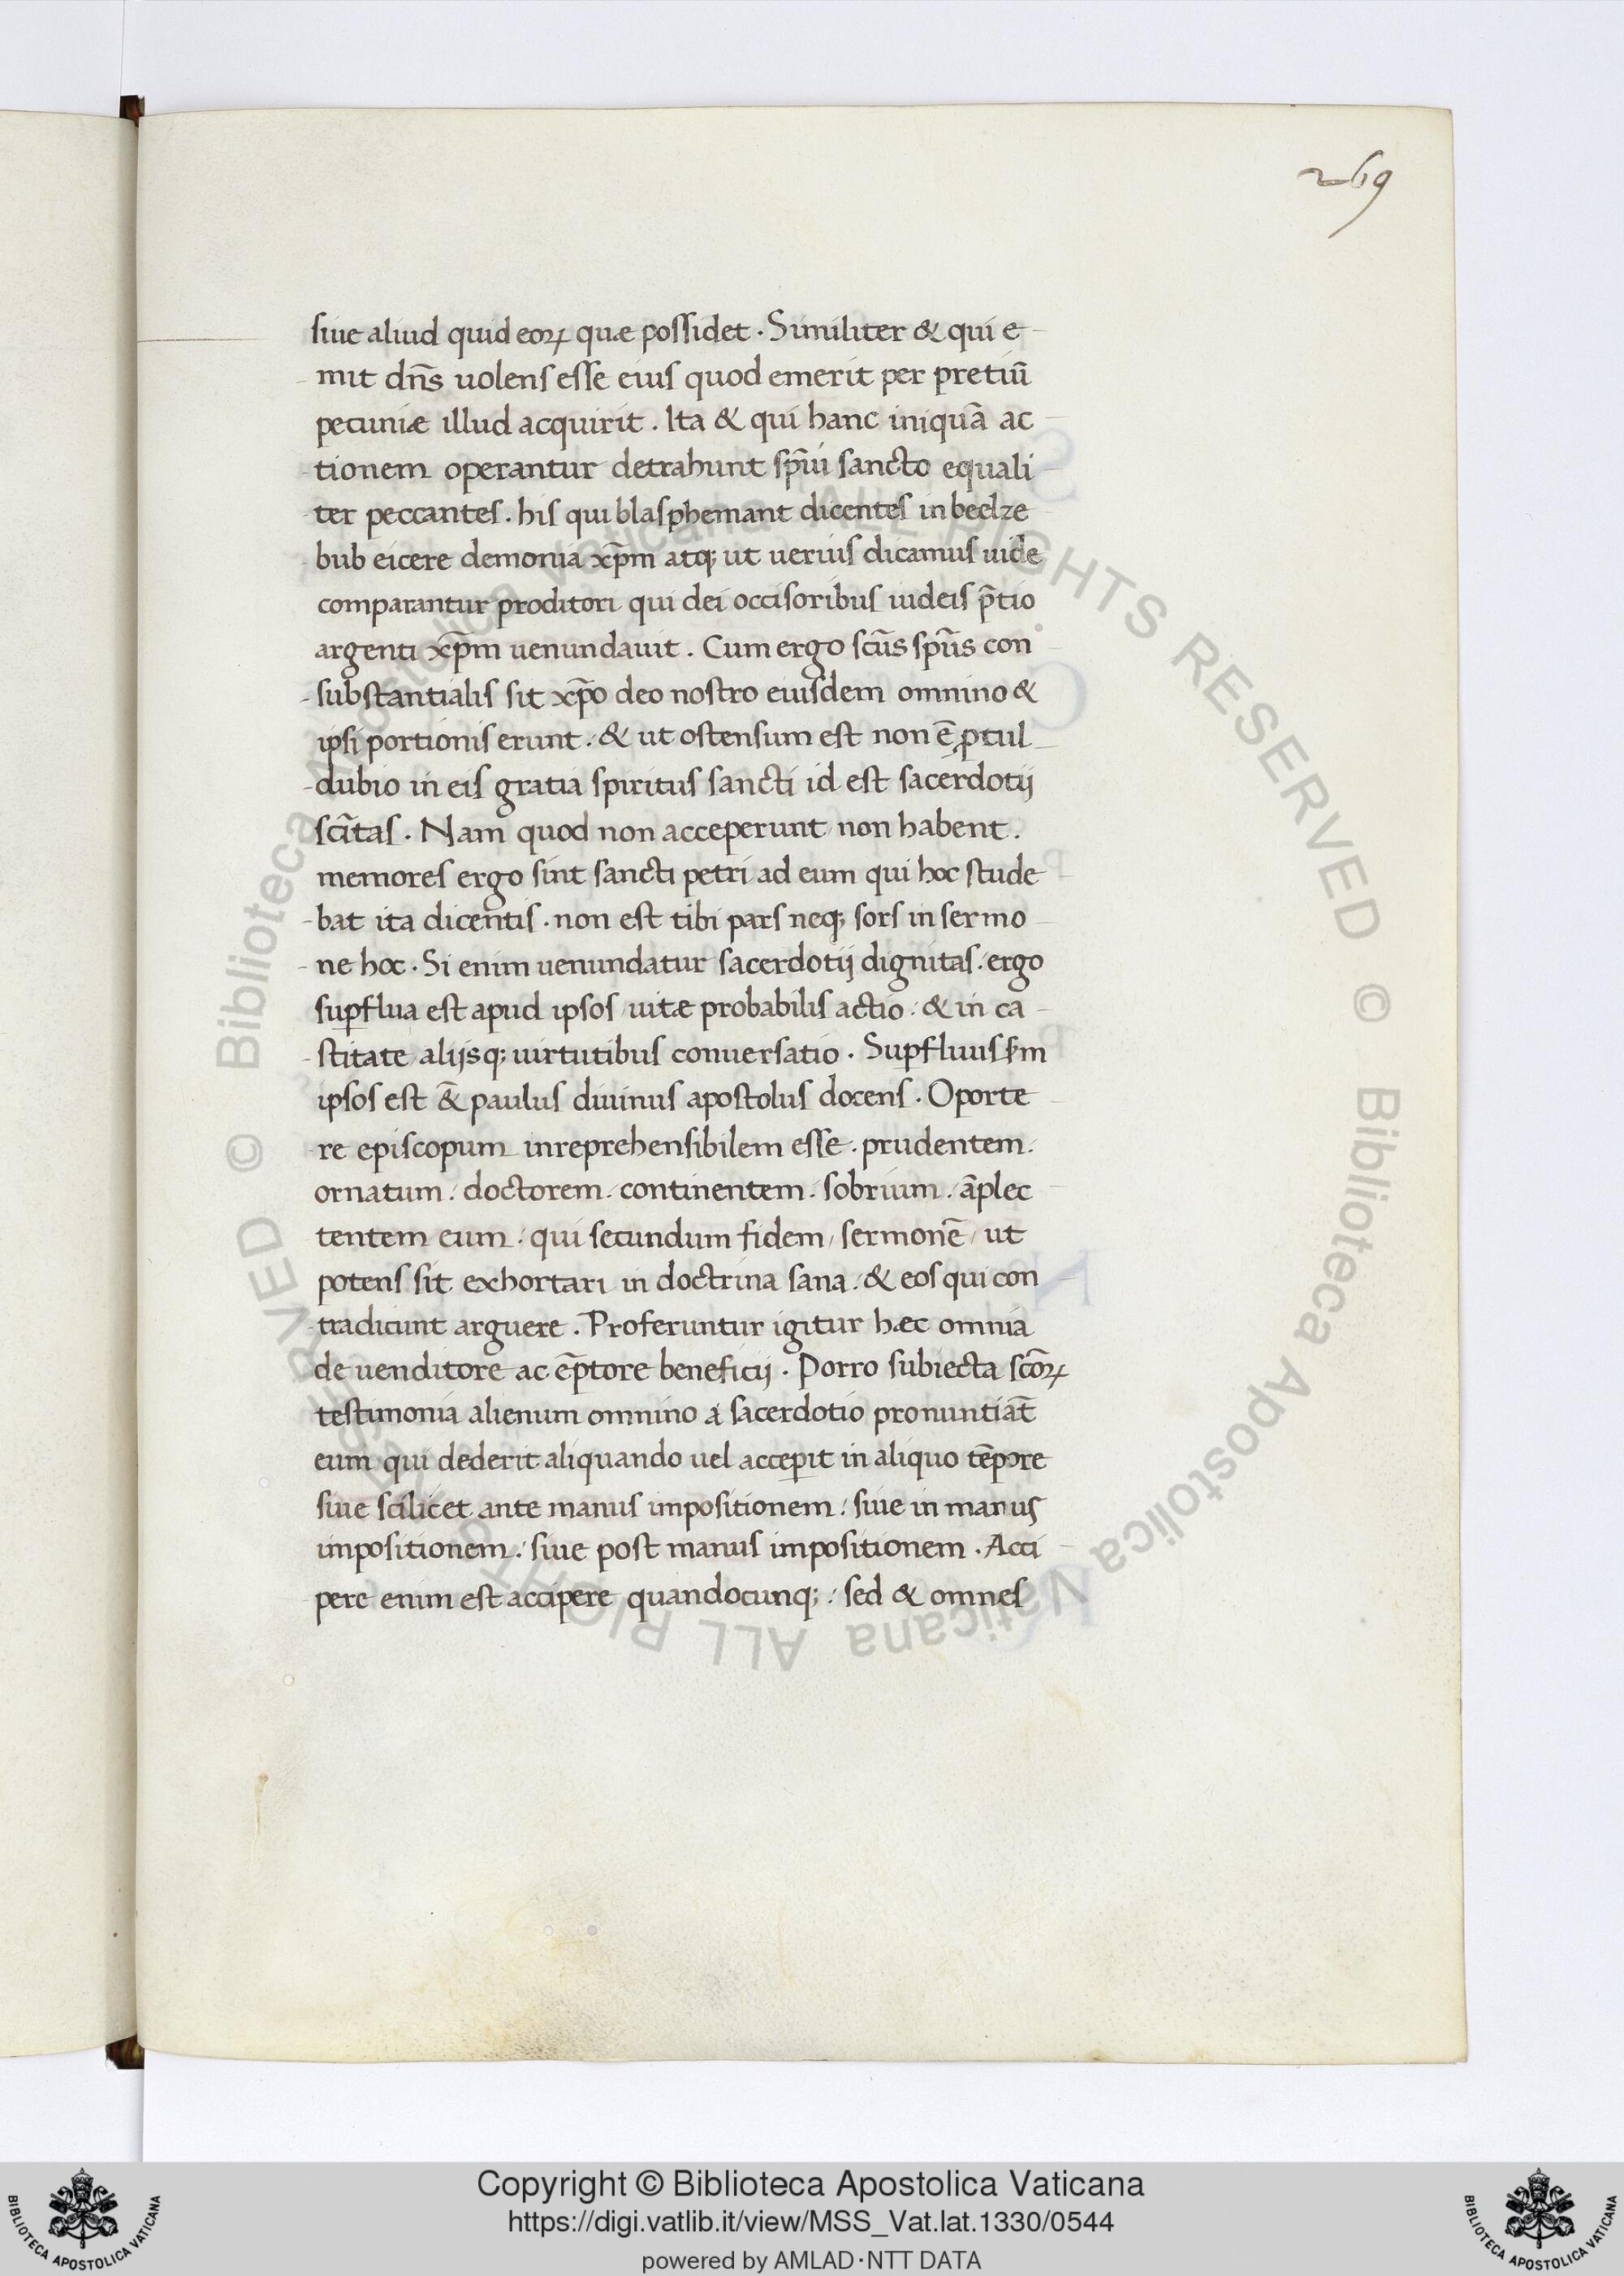 269
siue aliud quid eoꝝ quæ possidet. Similiter & qui e
mit dn̄s uolens esse eius quod emerit per pretiū
pecuniæ illud acquirit. Ita & qui hanc iniquā ac
tionem operantur detrahunt sp̄ui sancto equali
ter peccantes. his qui blasphemant dicentes in beelze
bub eicere demonia xp̄m atq; ut uerius dicamus iude
comparantur proditori qui dei occisoribus iudeis p̄tio
argenti xp̄m uenundauit. Cum ergo scūs spūs con
substantialis sit xp̄o deo nostro eiusdem omnino &
ipsi portionis erunt. & ut ostensum est non ē ꝓcul
dubio in eis gratia spiritus sancti id est sacerdotij
scītas. Nam quod non acceperunt non habent.
memores ergo sint sancti petri ad eum qui hoc stude
bat ita dicentis. non est tibi pars neq; sors in sermo
ne hoc. Si enim uenundatur sacerdotij dignitas. ergo
suꝑflua est apud ipsos uitæ probabilis actio: & in ca
stitate alijsq; uirtutibus conuersatio. Suꝑfluus sm̄
ipsos est &̄ paulus diuinus apostolus docens. Oporte
re episcopum inreprehensibilem esse. prudentem.
ornatum: doctorem: continentem. sobrium. āplec
tentem eum: qui secundum fidem, sermonē, ut
potens sit exhortari in doctrina sana: & eos qui con
tradicunt arguere. Proferuntur igitur hæc omnia
de uenditore ac ēptore beneficij. Porro subiecta scōꝝ
testimonia alienum omnino a sacerdotio pronuntiāt
eum qui dederit aliquando uel acceperit in aliquo tēpore
siue scilicet ante manus impositionem: siue in manus
impositionem: siue post manus impositionem. Acci
pere enim est accipere quandocunq;: sed & omnes
© Biblioteca Apostolica Vaticana ALL RIGHTS RESERVED © Biblioteca Apostolica Vaticana ALL RIGHTS RESERVED
Copyright © Biblioteca Apostolica Vaticana
https://digi.vatlib.it/view/MSS_Vat.lat.1330/0544
powered by AMLAD·NTT DATA
BIBLIOTECA APOSTOLICA VATICANA
BIBLIOTECA APOSTOLICA VATICANA